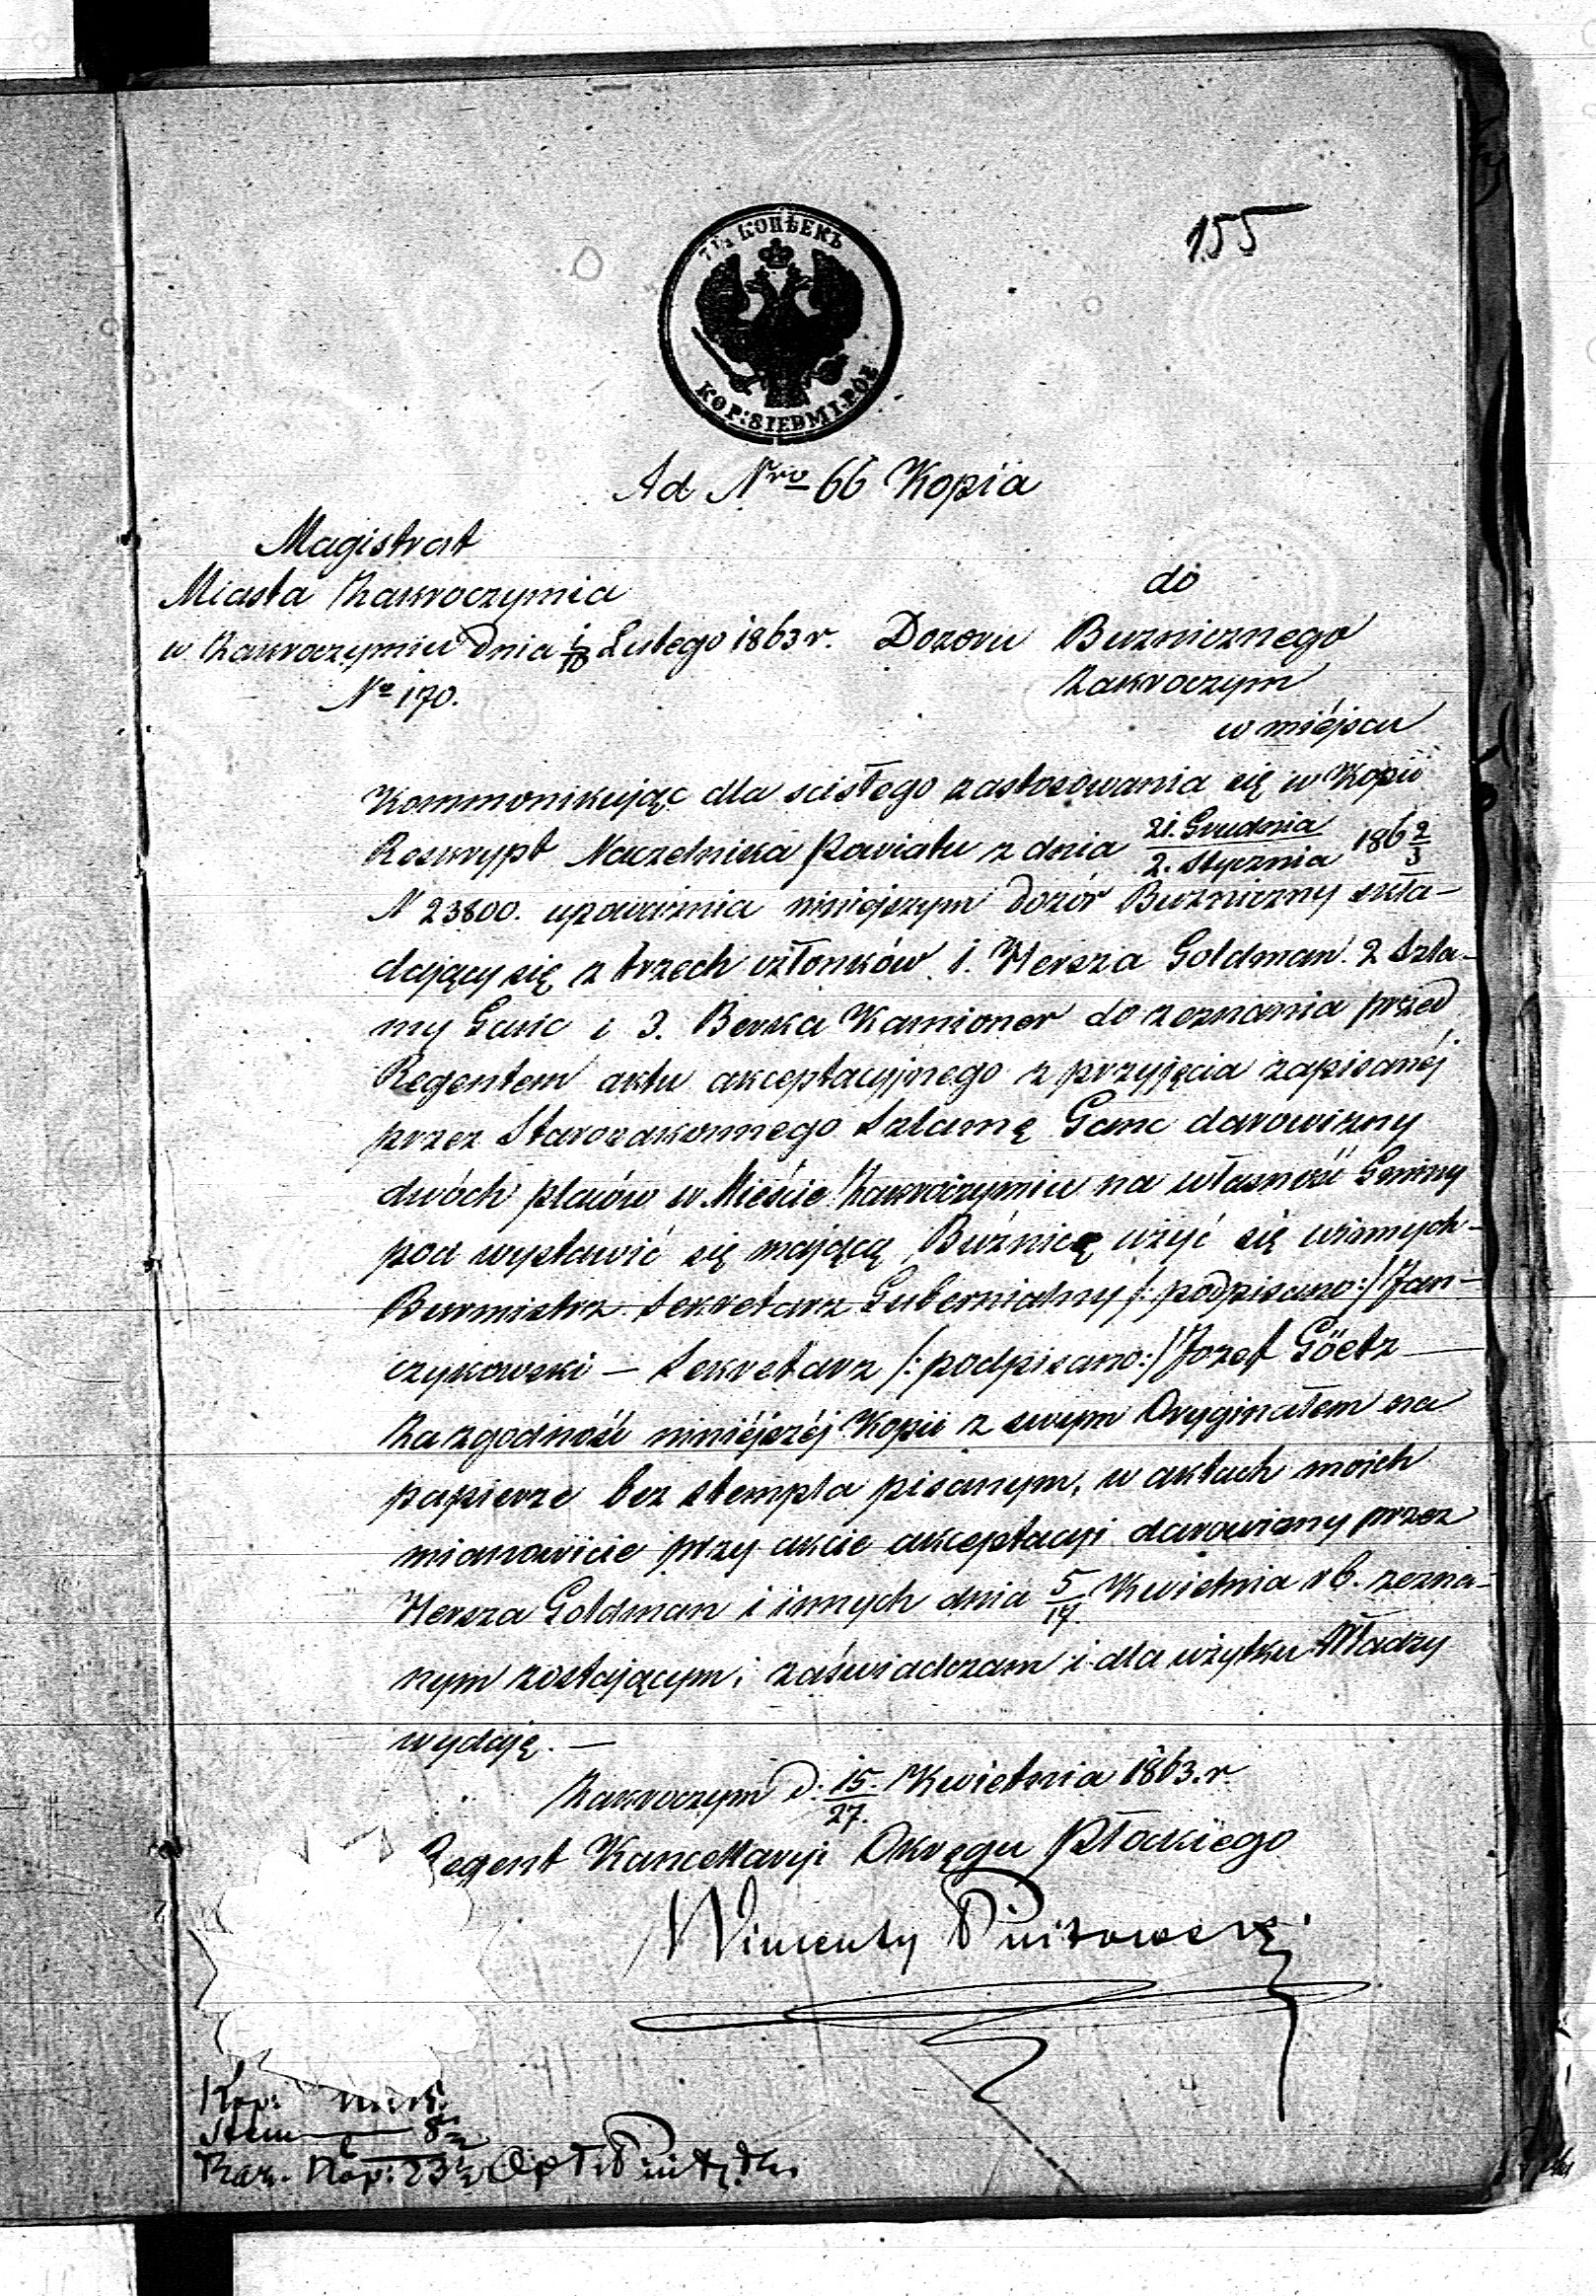 155
7½ КОПѢЕКЪ
KOP: SIEDMI. PÓŁ
Ad Nro 66 Kopia
Magistrat
Miasta Zakroczymia
do
w Zakroczymiu dnia Lutego 1863 r. Dozoru Buznicznego
Nº 170.
Zakroczym
w miéjscu
Kommonikując dla scisłego zastosowania się w Kopii
Reskrypt Naczelnika Powiatu z dnia 21. Grudnia/2. Stycznia 186 2/3
N 23800. upoważnia niniejszym dozór Buzniczny skła-
dający się z trzech członków 1. Hersza Goldman. 2 Szla-
my Ganc i 3. Berka Kamioner do zeznania przed
Regentem aktu akceptacyjnego z przyjęcia zapisanéj
przez Starozakonnego Szlamę Ganc darowizny
dwóch placów w Mieście Zakroczymiu na własność Gminy
pod wystawić się mającą Buźnicę, użyć się
Burmistrz Sekretarz Gubernialny /: podpisano:/ Jan-
czykowski — Sekretarz /: podpisano:/ Jozef Göetz —
Za zgodność niniéjszéj Kopii z swym Oryginałem na
papierze bez stempla pisanym, w aktach moich
mianowicie przy akcie akceptacyi darowizny przez
Hersza Goldman i innych dnia 5/17. Kwietnia r b. zezna-
nym zostającym; zaświadczam i dla użytku Władzy
wydaję. —
Zakroczym d. 15./27. Kwietnia 1863. r.
Regent Kancellaryi Okręgu Płockiego
Wincenty
Kop:
Stem — 8½
Raz. Kop: 23½